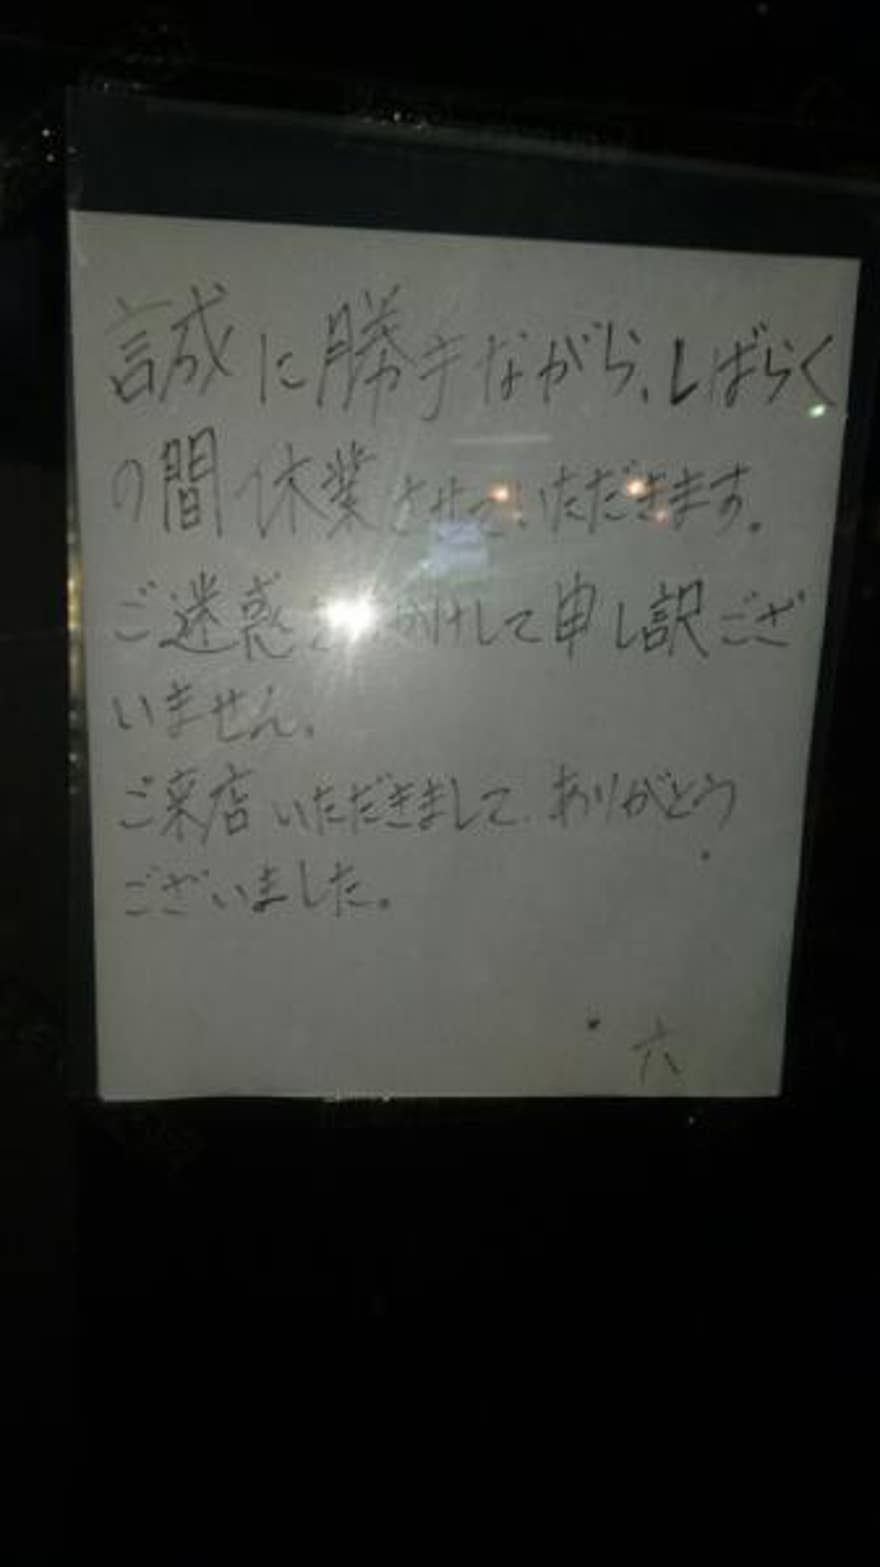 誠に勝手ながら、しばらく
の間休業させていただきます。
ご迷惑をおかけして申し訳ござ
いません。
ご来店いただきまして、ありがとう
ございました。
六